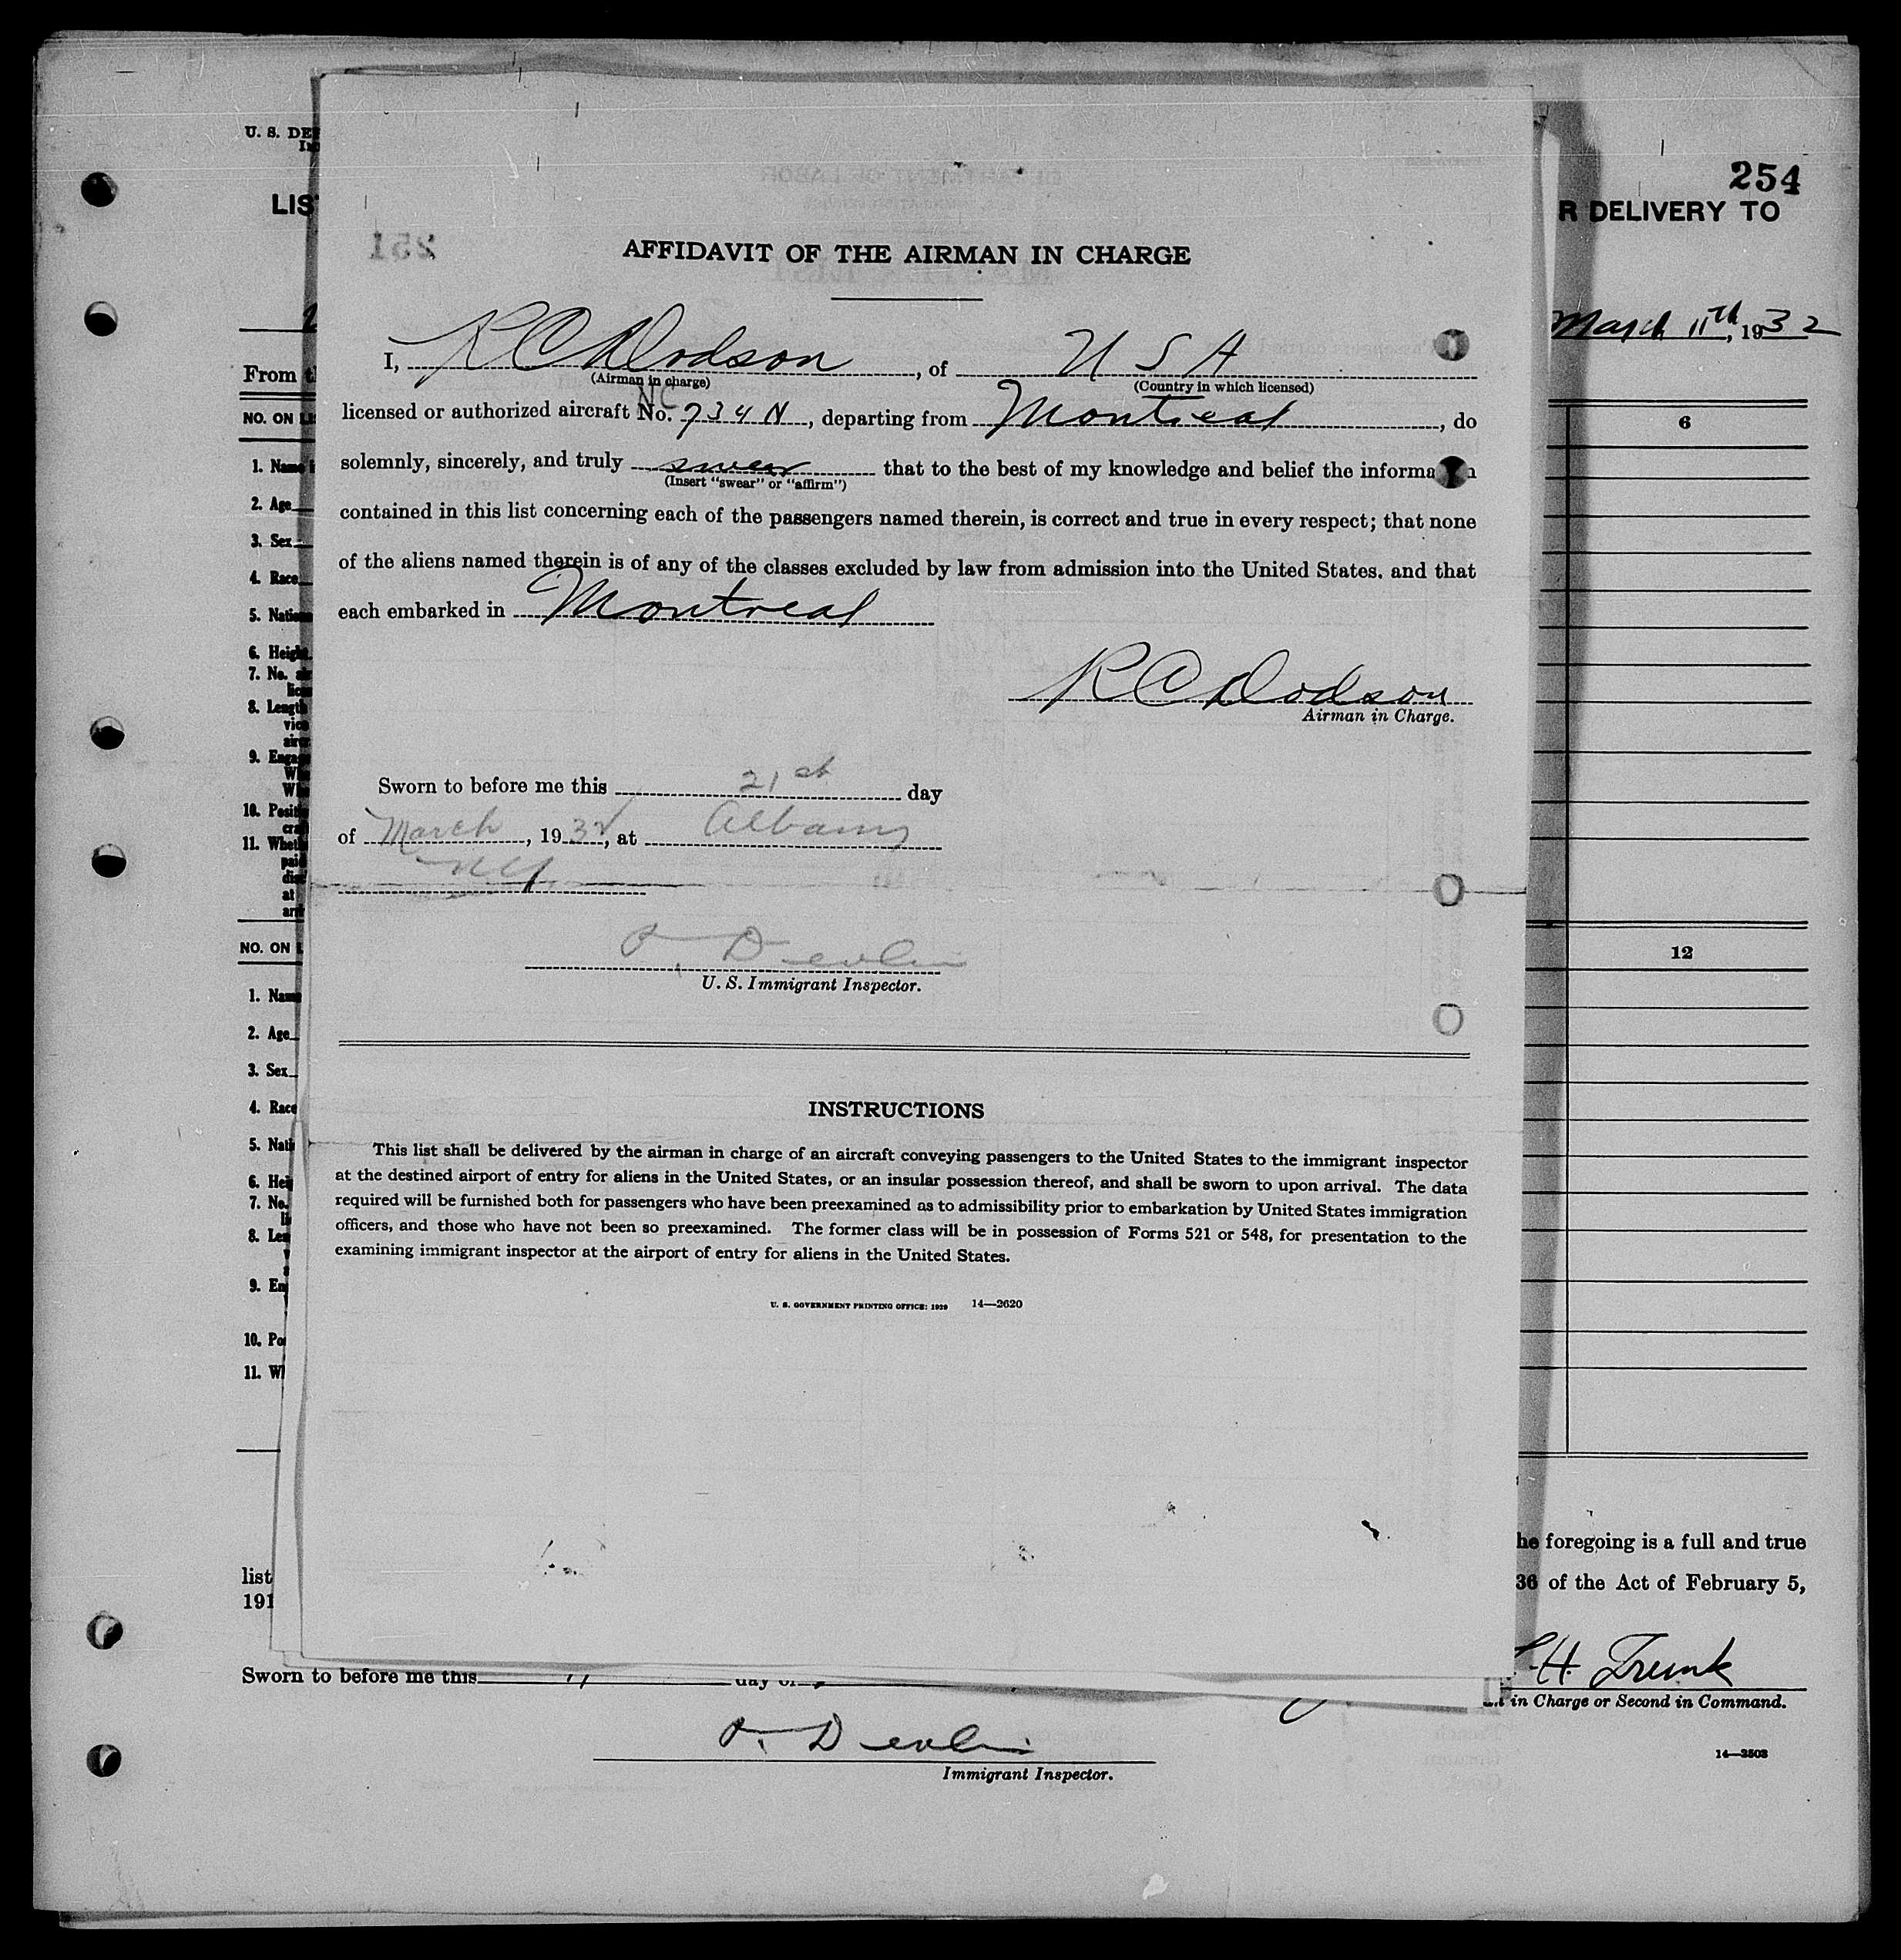 U. S. DE
254
LIS
R DELIVERY TO
251
AFFIDAVIT OF THE AIRMAN IN CHARGE
March 11th, 1932
I, R C Dodson, of U S A
(Airman in charge) (Country in which licensed)
From t
NC
licensed or authorized aircraft No. 734 N, departing from Montreal, do
NO. ON LIS
6
solemnly, sincerely, and truly swear that to the best of my knowledge and belief the informa n
(Insert "swear" or "affirm")
1. Name
contained in this list concerning each of the passengers named therein, is correct and true in every respect; that none
2. Age
3. Sex
of the aliens named therein is of any of the classes excluded by law from admission into the United States. and that
4. Race
each embarked in Montreal
5. Nation
6. Height
7. No. air
lice
R C Dodson
Airman in Charge.
8. Length
vice
airc
9. Engag
Wh
Wh
Sworn to before me this 21st day
10. Positi
cra
of March, 1932, at Albany
11. Wheth
paid
dis
at
arri
NY
NO. ON L
12
P. Devlin
U. S. Immigrant Inspector.
1. Name
2. Age
3. Sex
4. Race
INSTRUCTIONS
5. Nati
This list shall be delivered by the airman in charge of an aircraft conveying passengers to the United States to the immigrant inspector
at the destined airport of entry for aliens in the United States, or an insular possession thereof, and shall be sworn to upon arrival. The data
6. Hei
required will be furnished both for passengers who have been preexamined as to admissibility prior to embarkation by United States immigration
7. No.
li
officers, and those who have not been so preexamined. The former class will be in possession of Forms 521 or 548, for presentation to the
8. Len
examining immigrant inspector at the airport of entry for aliens in the United States.
9. En
U. S. GOVERNMENT PRINTING OFFICE: 1929 14—2620
10. Po
11. W
he foregoing is a full and true
list
36 of the Act of February 5,
191
H. Trunk
Sworn to before me this 11 day of
in Charge or Second in Command.
P. Devlin
Immigrant Inspector.
14—2503